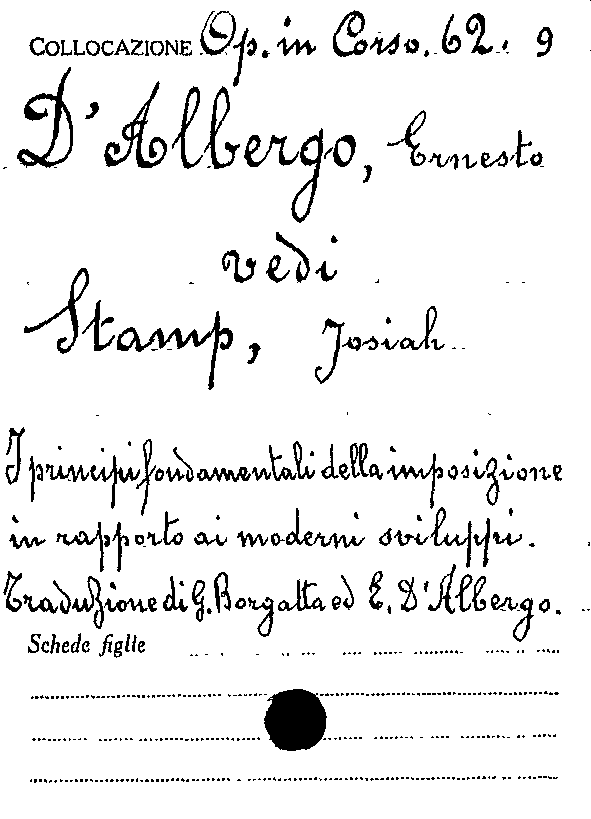 COLLOCAZIONE Op. in Corso. 62. 9
D'Albergo, Ernesto
vedi
Stamp, Josiah
I principi fondamentali della imposizione
in rapporto ai moderni sviluppi.
Traduzione di G. Borgatta ed E. D'Albergo.
Schede figlie